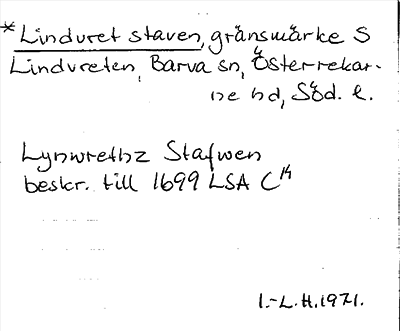 *Lindvret staven, gränsmärke S
Lindvreten, Barva sn, Österrekar-
ne hd, Söd. l.
Lynwrethz Stafwen
beskr. till 1699 LSA C14
I.-L.H.1971.